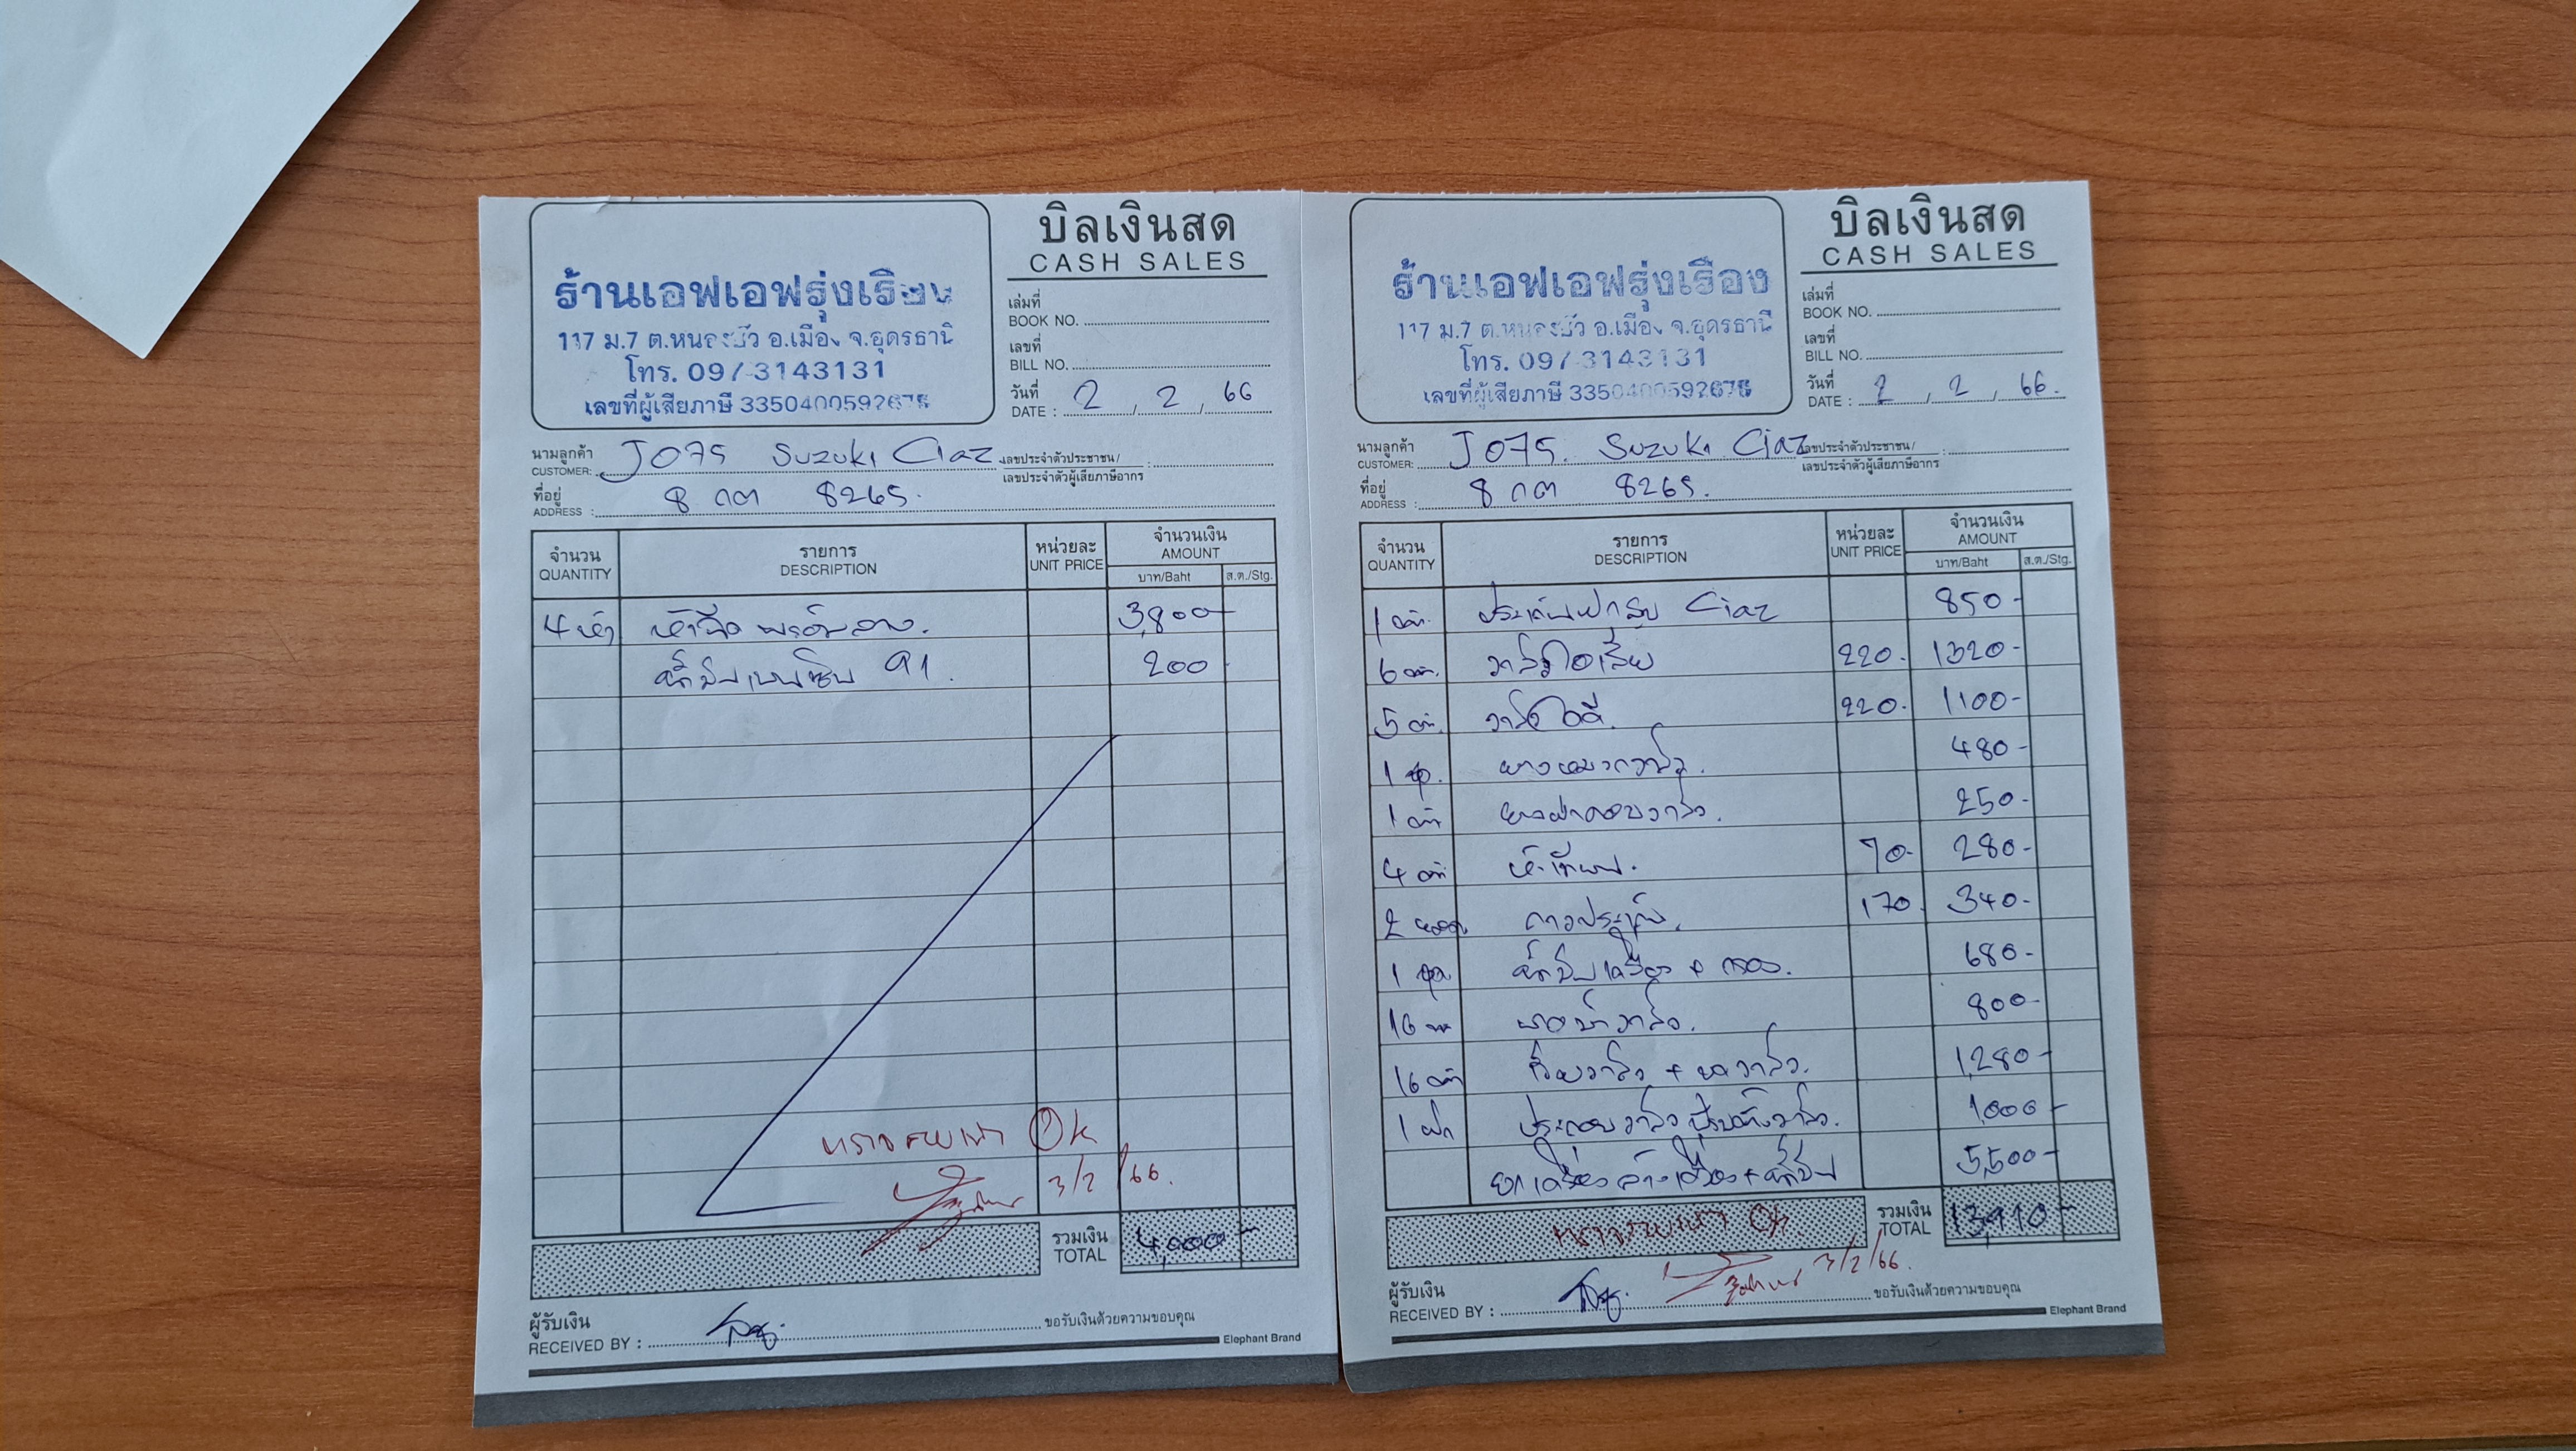 บิลเงินสด
CASH SALES
ร้านเอฟเอฟรุ่งเรือง
117 ม.7 ต.หนองบัว อ.เมือง จ.อุดรธานี
โทร. 097-3143131
เลขที่ผู้เสียภาษี 3350400592675
เล่มที่
BOOK NO.
เลขที่
BILL NO.
วันที่
DATE : 2 / 2 / 66
นามลูกค้า
CUSTOMER: J075 Suzuki Ciaz
เลขประจำตัวประชาชน /
เลขประจำตัวผู้เสียภาษีอากร :
ที่อยู่
ADDRESS : 8 กต 8265.
จำนวน รายการ หน่วยละ จำนวนเงิน
QUANTITY DESCRIPTION UNIT PRICE AMOUNT
บาท/Baht ส.ต./Stg.
4 หัว หัวฉีด พร้อมล้าง. 3,800-
น้ำมันเบนซิน 91. 200
ตรวจสอบแล้ว OK
3/2/66.
รวมเงิน
TOTAL 4,000-
ผู้รับเงิน
RECEIVED BY : ขอรับเงินด้วยความขอบคุณ
Elephant Brand
บิลเงินสด
CASH SALES
ร้านเอฟเอฟรุ่งเรือง
117 ม.7 ต.หนองบัว อ.เมือง จ.อุดรธานี
โทร. 097-3143131
เลขที่ผู้เสียภาษี 3350400592675
เล่มที่
BOOK NO.
เลขที่
BILL NO.
วันที่
DATE : 2 / 2 / 66.
นามลูกค้า
CUSTOMER: J075. Suzuki Ciaz
เลขประจำตัวประชาชน /
เลขประจำตัวผู้เสียภาษีอากร :
ที่อยู่
ADDRESS : 8 กต 8265.
จำนวน รายการ หน่วยละ จำนวนเงิน
QUANTITY DESCRIPTION UNIT PRICE AMOUNT
บาท/Baht ส.ต./Stg.
1 ตัว. ประเก็นฝาสูบ Ciaz 850-
6 ตัว. วาล์วไอเสีย 220. 1320-
5 ตัว. วาล์วไอดี. 220. 1100-
1 ชุด. ยางหมวกวาล์ว. 480-
1 ตัว ยางฝาครอบวาล์ว. 250-
4 ตัว หัวเทียน. 70- 280-
2 หลอด กาวประเก็น. 170. 340-
1 ชุด น้ำมันเครื่อง + กรอง. 680-
16 วาล์ว. 800-
16 ตัว วาล์ว + วาล์ว. 1,280-
1 ฝา ประกอบวาล์ว ปรับตั้งวาล์ว. 1,000-
ยกเครื่อง ล้างเครื่อง + น้ำมัน 5,500-
ตรวจสอบแล้ว Ok.
รวมเงิน
TOTAL 13,910-
3/2/66.
ผู้รับเงิน
RECEIVED BY : ขอรับเงินด้วยความขอบคุณ
Elephant Brand